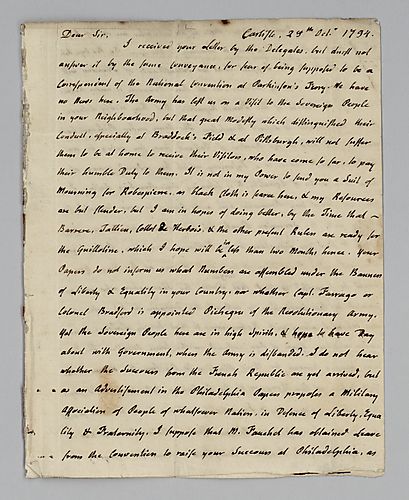 Dear Sir,
Carlisle, 28th Octr 1794.
I received your Letter by the Delegates, but durst not
answer it by the same conveyance, for fear of being supposed to be a
Correspondent of the National Convention at Parkinson's Ferry. We have
no News here. The Army has left us on a Visit to the Sovereign People
in your Neighbourhood, but that great Modesty which distinguished their
Conduct, especially at Braddock's Field & at Pittsburgh, will not suffer
them to be at home to receive their Visitors, who have come so far, to pay
their humble Duty to them. It is not in my Power to send you a Suit of
Mourning for Robespierre, as black Cloth is scarce here, & my Resources
are but slender, but I am in hopes of doing better, by the Time that
Barrere, Tallien, Collot de Herbois, & the other present Rulers are ready for
the Guillotine, which I hope will be in less than two Months hence. Your
Papers do not inform us what Numbers are assembled under the Banners
of Liberty & Equality in your Country, nor whether Capt. Farrago or
Colonel Bradford is appointed Pichegru of the Revolutionary Army.
Yet the Sovereign People here are in high Spirits, & hope to have Day
about with Government, when the Army is disbanded. I do not hear
whether the Succours from the French Republic are yet arrived, but
as an Advertisement in the Philadelphia Papers proposes a Military
Association of People of whatsoever Nation, in Defence of Liberty, Equa
lity & Fraternity, I suppose that M. Fauchet has obtained Leave
from the Convention to raise your Succours at Philadelphia, as